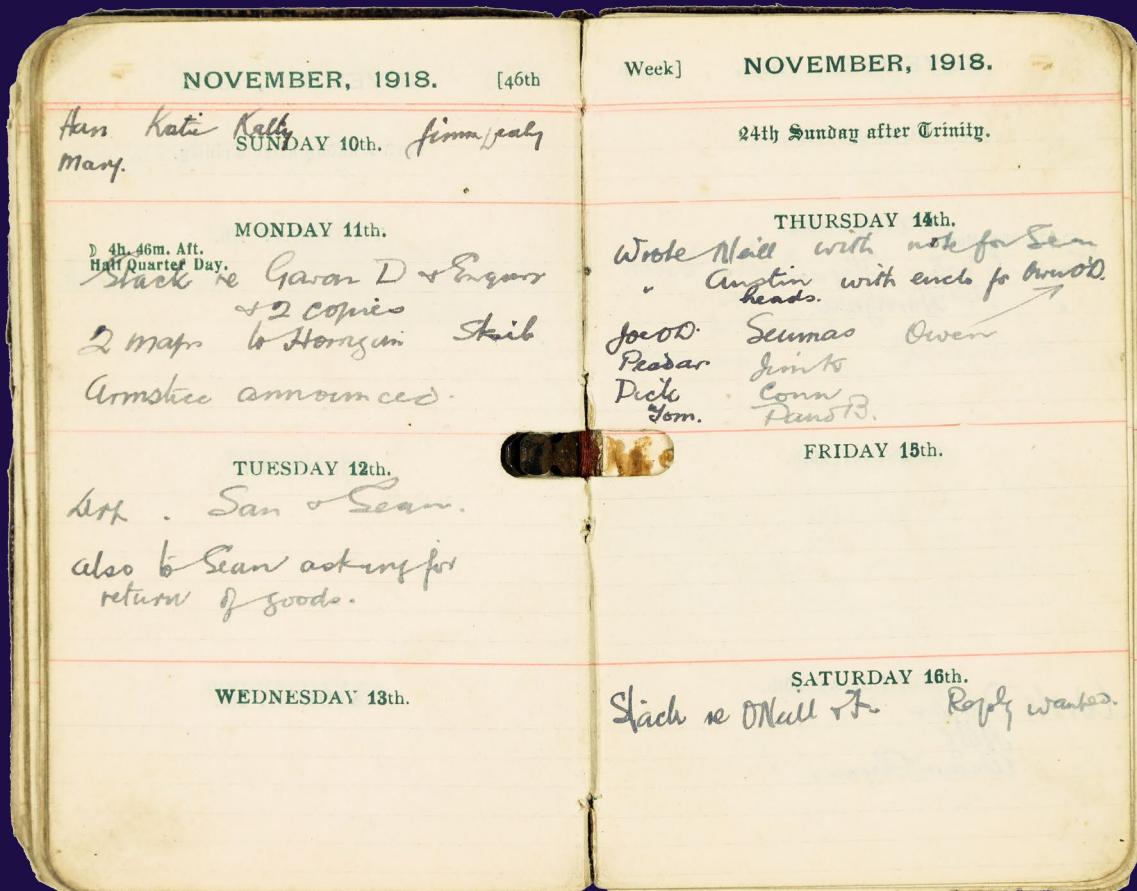 NOVEMBER, 1918. [46th
Katie Kelly
SUNDAY 10th.
Mary.
MONDAY 11th.
☽ 4h. 46m. Aft.
Half Quarter Day.
Stack re Gavan D &
& 2 copies
2 maps to Horrigan Skib
Armstice announced.
TUESDAY 12th.
San & Sean.
also to Sean asking for
return of goods.
WEDNESDAY 13th.
Week] NOVEMBER, 1918.
24th Sunday after Trinity.
THURSDAY 14th.
Wrote Neill with note for Sean
" Austin with encls for Owen O'D.
heads.
Joe O'D. Seumas Owen
Peadar
Dick Conn
Tom.
FRIDAY 15th.
SATURDAY 16th.
Stack re O'Neill & Reply wanted.